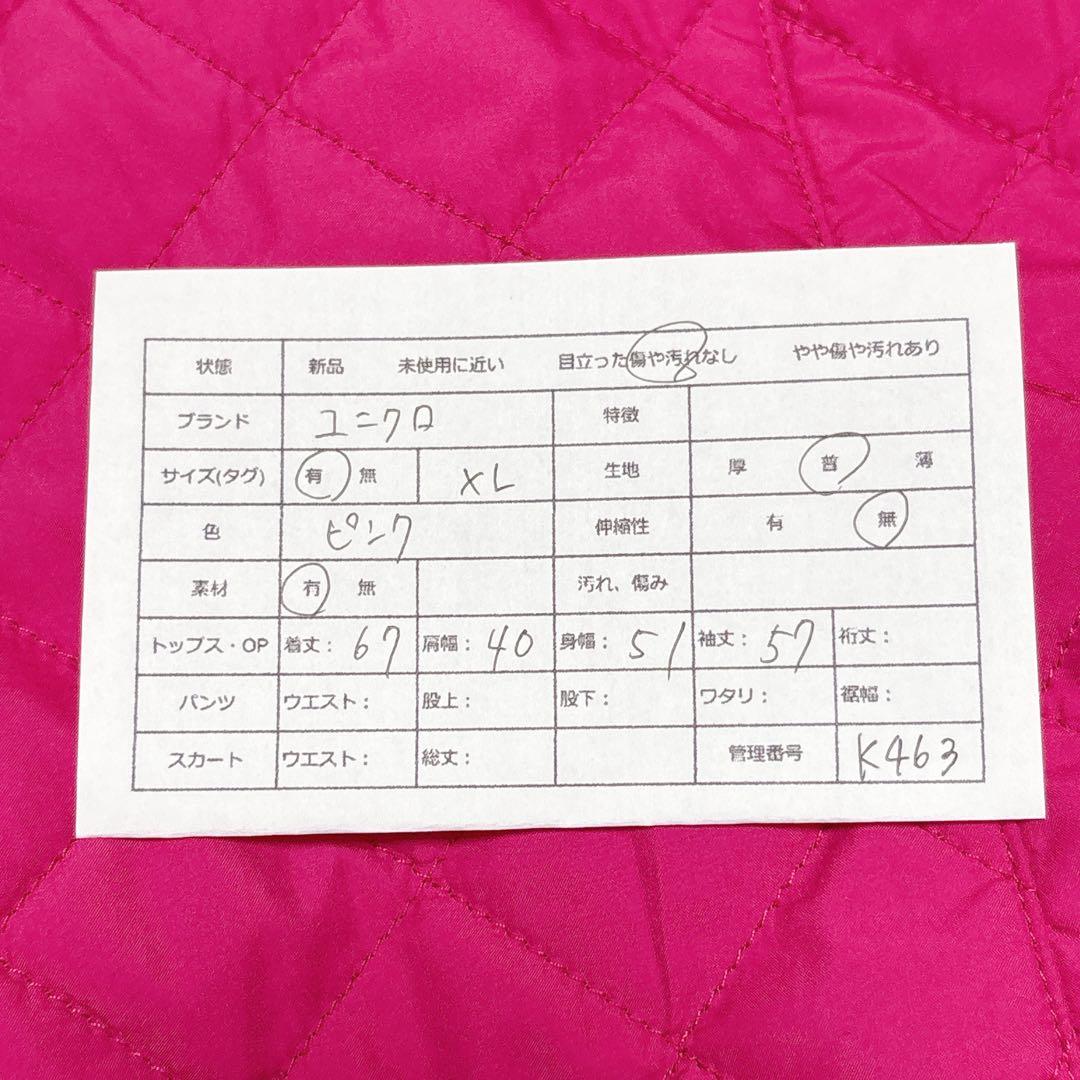 状態 新品 未使用に近い 目立った傷や汚れなし やや傷や汚れあり
ブランド ユニクロ 特徴
サイズ(タグ) 有 無 XL 生地 厚 普 薄
色 ピンク 伸縮性 有 無
素材 有 無 汚れ、傷み
トップス・OP 着丈： 67 肩幅： 40 身幅： 51 袖丈： 57 裄丈：
パンツ ウエスト： 股上： 股下： ワタリ： 裾幅：
スカート ウエスト： 総丈： 管理番号 K463